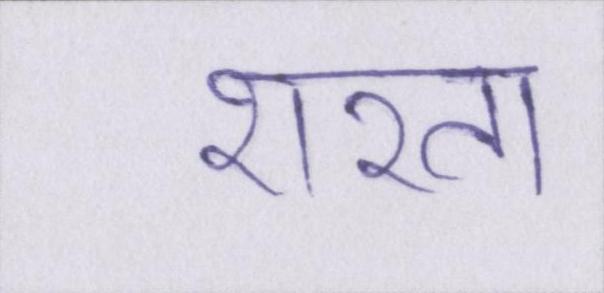 शरता